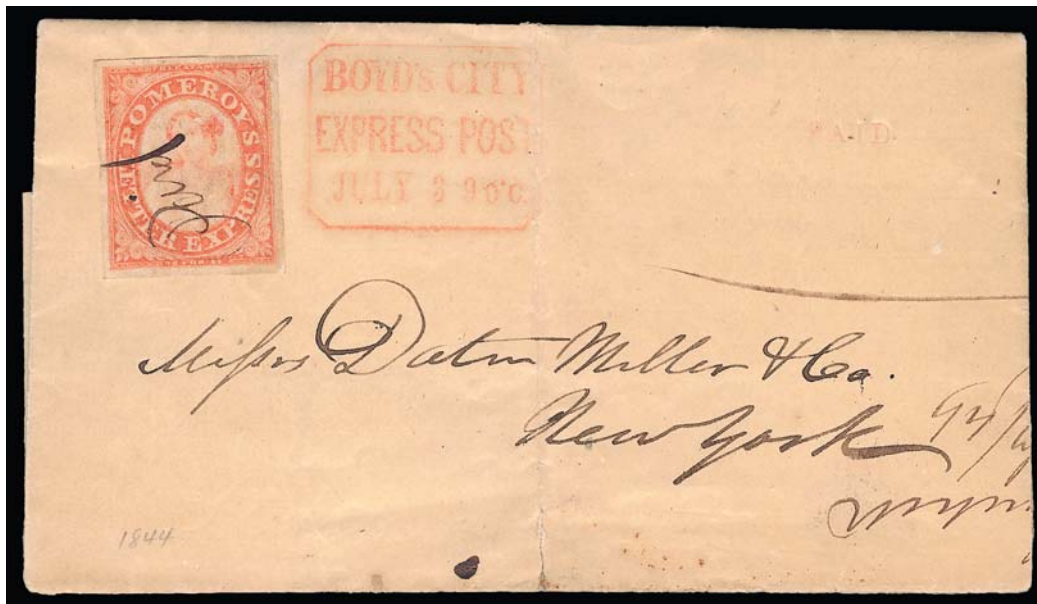 POMEROY'S
LETTER EXPRESS
BOYD'S CITY
EXPRESS POST
JULY 3 9 o'C.
PAID
Messrs Daten Miller & Co.
New York
1844